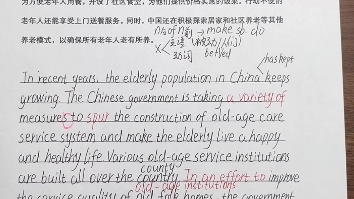 方方便老年人用餐,开设了社区食堂,为他们提供价格实惠的饭菜。行动不便的
老年人还能享受上门送餐服务。同时,中国还在积极探索居家和社区养老等其他
养老模式,以确保所有老年人老有所养。
make sb do
has kept
In recent years, the elderly population in China keeps
growing. The Chinese government is taking a variety of
measures to spur the construction of old-age care
service system and make the elderly live a happy
and healthy life. Various old-age service institutions
county
are built all over the country. In an effort to improve
old-age institutions
the service quality of old folk homes, the government